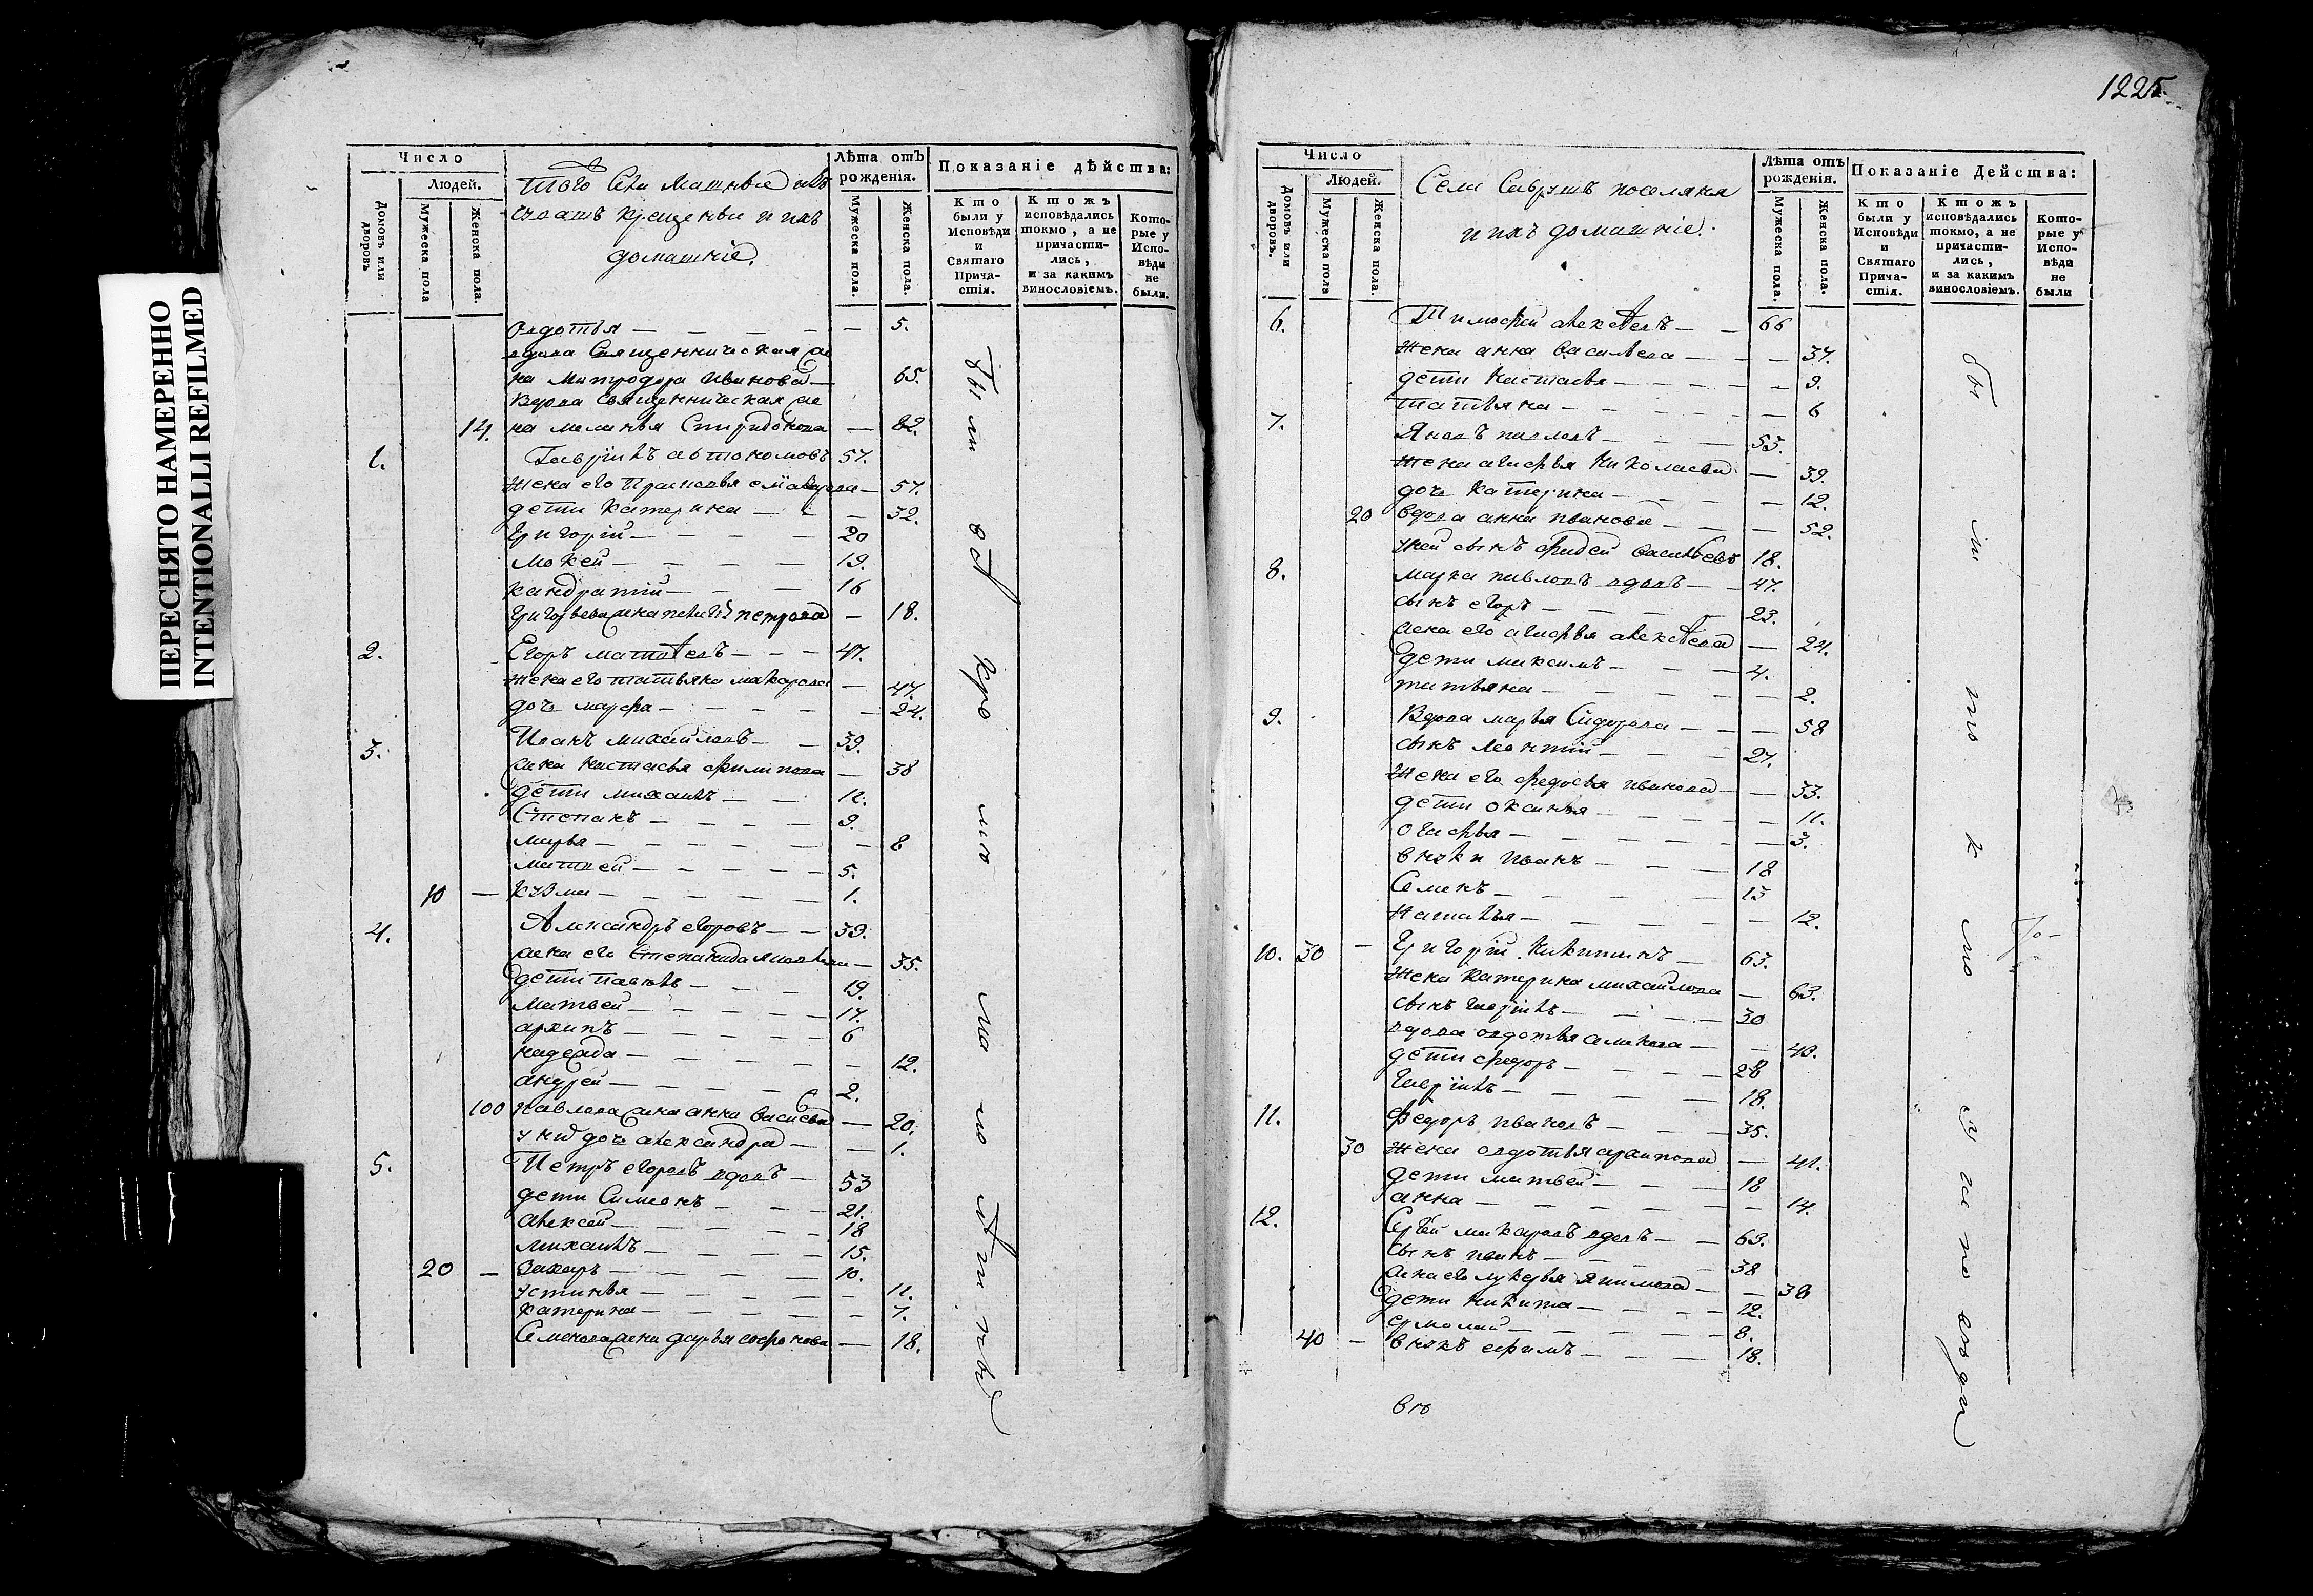 ПЕРЕСНЯТО НАМЕРЕННО
INTENTIONALLI REFILMED
Число
Людей.
Домовъ или дворовъ
Мужеска пола
Женска пола.
того Села
крещенные и ихъ
домашніе.
Лѣта отъ рожденія.
Мужеска пола.
Женска пола.
Показаніе дѣйства:
Кто были у Исповѣди и Святаго Причастія.
Ктожъ исповѣдались токмо, а не причастились, и за какимъ винословіемъ.
Которые у Исповѣди не были.
Авдотья — — — — — 5.
вдова Священническая же
на Митродора Иванова — 65.
Вдова Священническая же
14. на Меланья Спиридонова — 82.
1. Гаврилъ Автономовъ 57.
жена его Прасковья — 57.
дети Катерина — — — 32.
Григорій — — — — 20
Мокей — — — — 19.
Кандратій — — — 16
Григорьева жена Петрова — 18.
2. Егоръ Матвѣевъ — — — 47.
жена его Татьяна Макарова — 47.
дочь Марфа — — — — — 24.
3. Иванъ Михайловъ — — 39.
жена Настасья Филипова — 38
дети Михаилъ — — 11.
Степанъ — — — — 9.
Марья — — — — — 8
Матвей — — — — — 5.
10 — Кузма — — — — — 1.
4. Александръ Егоровъ — — 39.
жена его Степанида — 35.
дети Павелъ — — — 19.
Матвей — — — — 17.
Архипъ — — — — 6
Надежда — — — — — 12.
Андрей — — — — — 2.
100 Павлова жена Анна — 20.
у них дочь Александра — — 1.
5. Петръ Егоровъ вдовъ — 53
дети Симеонъ — — — 21.
Алексей — — — — 18
Михаилъ — — — — 15.
20 — Захаръ — — — — 10.
Устинья — — — — — 11.
Катерина — — — — — 7.
Семенова жена Дарья — 18.
бы ли
въ
кро
мѣ
1225.
Число
Людей.
Домовъ или дворовъ.
Мужеска пола
Женска пола.
Села поселяня
и ихъ домашніе.
Лѣта отъ рожденія.
Мужеска пола.
Женска пола.
Показаніе Дейсства:
Кто были у Исповѣди и Святаго Причастія.
Ктожъ исповѣдались токмо, а не причастились, и за какимъ винословіемъ.
Которые у Исповѣди не были
6. Тимофей Алексѣевъ — — 66
жена Анна Васильева — — — 37.
дети Настасья — — — — — 9.
Татьяна — — — — — 6
7. Яковъ Павловъ — — — 53.
жена Агафья Николаева — 39.
дочь Катерина — — — — 12.
20 вдова Анна Иванова — — — 52.
у ней сынъ Васильевъ 18.
8. Марка Павловъ вдовъ — — 47.
сынъ Егоръ — — — — 23.
жена его Агафья Алексѣева — 24.
дети Максимъ — — — 4.
Татьяна — — — — — 2.
9. Вдова Марья Сидорова — — — 58
сынъ Леонтій — — — 27.
жена его Федосья Иванова — — 33.
дети Оксинья — — — — 11.
Огафья — — — — — 3.
внуки Иванъ — — — 18
Семенъ — — — — 15
Наталья — — — — — 12.
10. 30 — Григорій Никитинъ — 63.
жена Катерина Михайлова — 63.
сынъ Гаврилъ — — — 30
вдова Авдотья — — 43.
дети Федоръ — — — — 28
Гаврилъ — — — — 18.
11. Федоръ Ивановъ — — — 35.
30 жена Авдотья Архипова — 41.
дети Матвей — — — 18
Анна — — — — — — 14.
12. Сергѣй Макаровъ вдовъ — — 63.
сынъ Иванъ — — — — 38
жена его Лукерья — — 38
дети Никита — — — — 12.
Ермолай — — — — 8.
40 — внукъ Ефимъ — — — 18.
бы
ли
то
к
мо
у
испо
вѣди